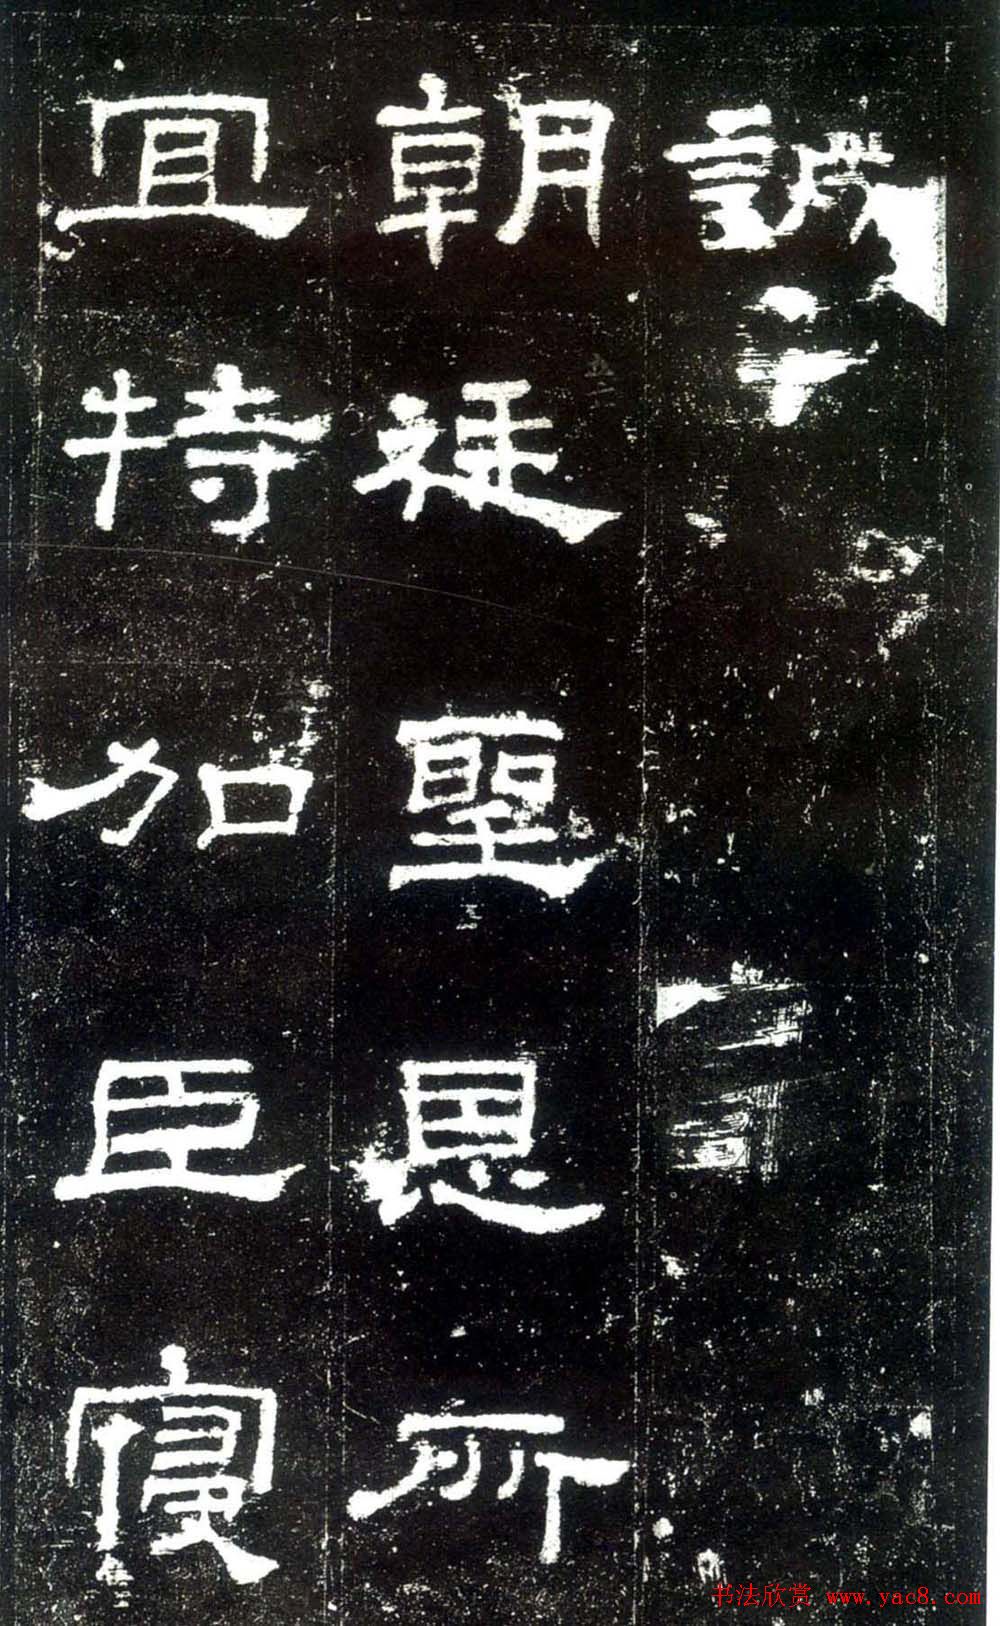 誠
朝廷聖恩所
宜特加臣寢
书法欣赏 www.yac8.com